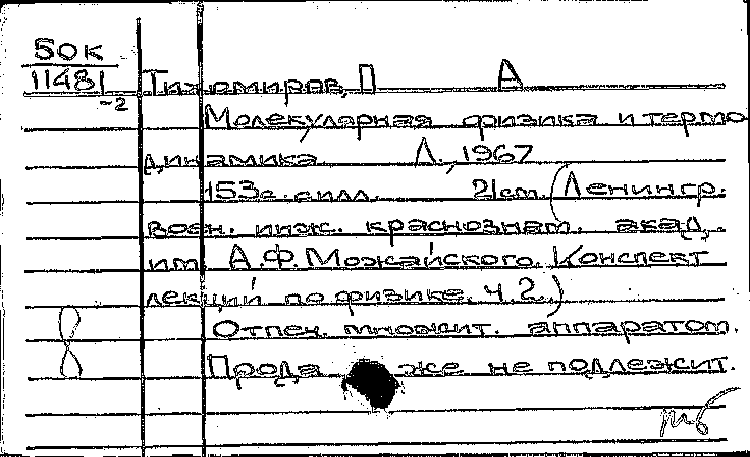 50к
11481
-2
Тихомиров, П А
Молекулярная физика и термо
динамика. Л., 1967
153с. силл. 21 см. (Ленингр.
воен. инж. краснознам. акад.
им. А.Ф. Можайского. Конспект
лекций по физике. Ч. 2.)
Отпеч. множит. аппаратом.
Прода же не подлежит.
8